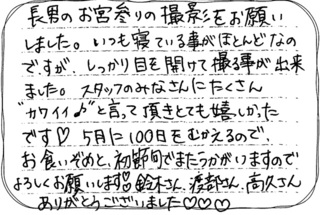 長男のお宮参りの撮影をお願い
しました。いつも寝ている事がほとんどなの
ですが、しっかり目を開けて撮る事が出来
ました。スタッフのみなさんにたくさん
"カワイイ♪"と言って頂きとても嬉しかった
です♡ 5月に100日をむかえるので、
お食いぞめと、初節句でまたうかがいますので
よろしくお願いします♡鈴木さん、渡部さん、高久さん
ありがとうございました♡♡♡